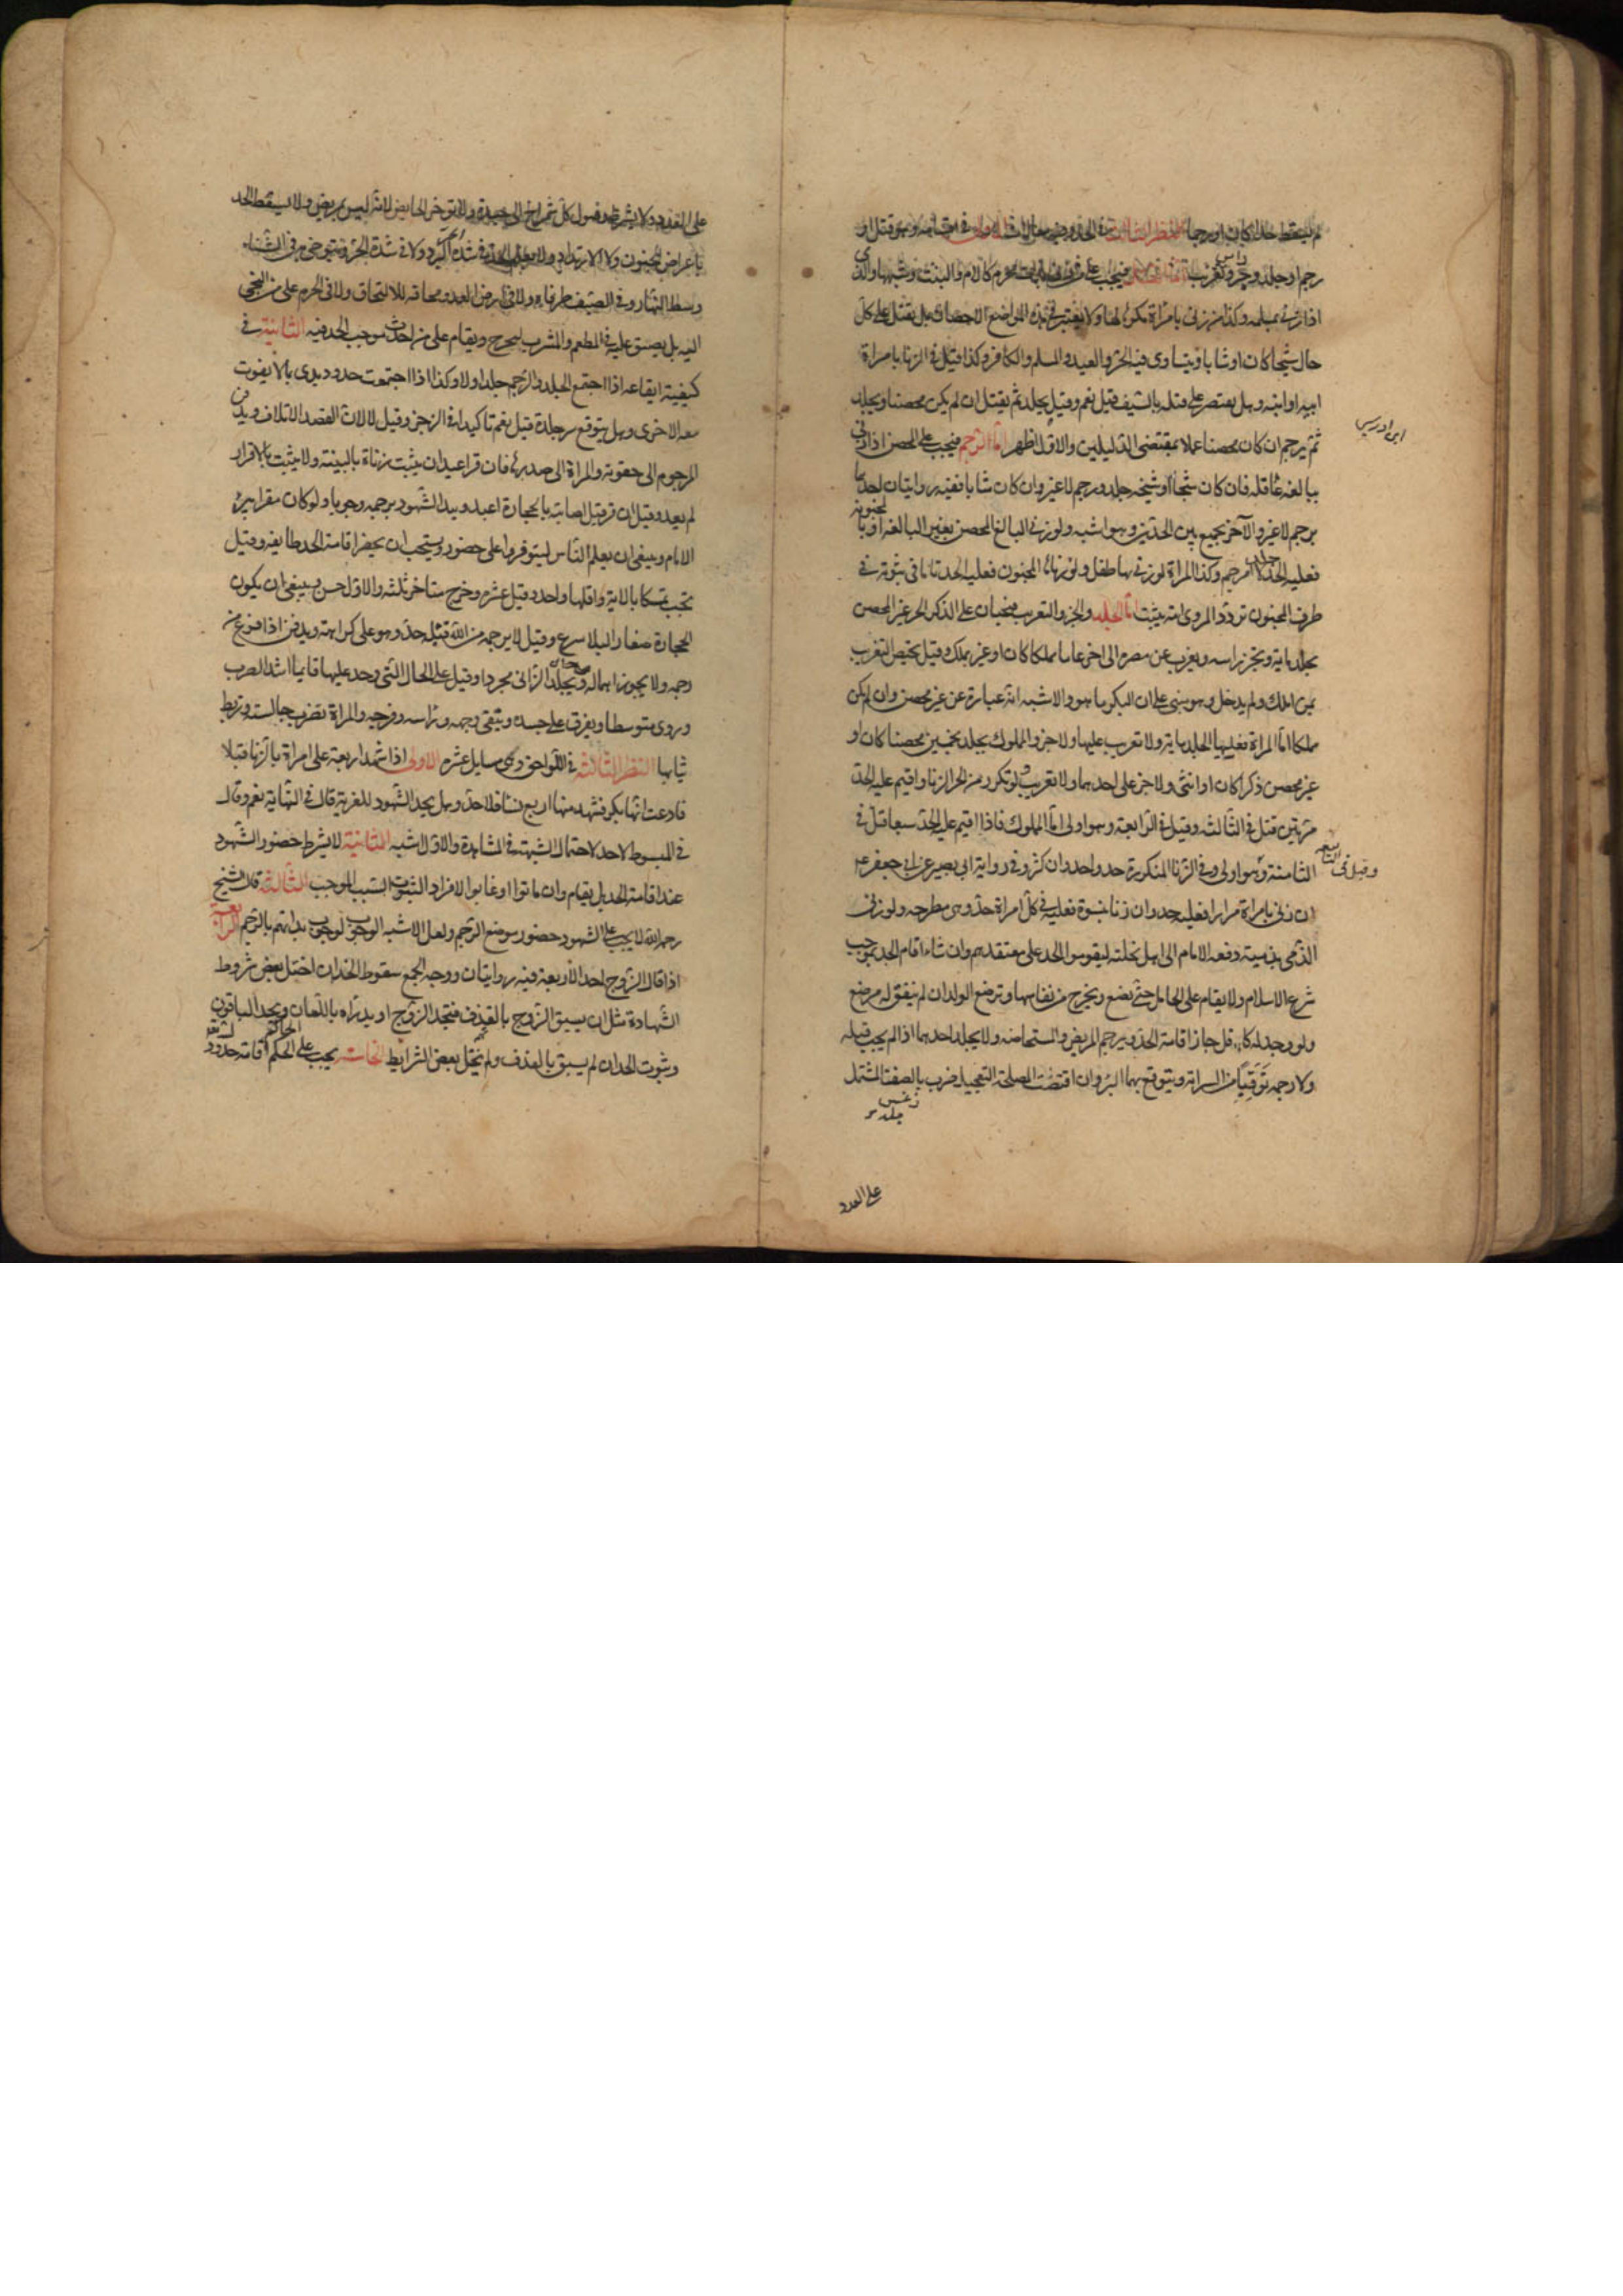 لم يسقط حدا كان او رجما النظر الثاني في الحد وفيه مقامان الاول في اقسامه وهو قتل او
رجم او جلد وجز راس وتغريب اما القتل فيجب على من زنى بذات محرم كالام والبنت وشبهها والذمي
اذا زنى بمسلمة وكذا من زنى بامراة مكرها لها ولا يعتبر في هذه المواضع الاحصان بل يقتل على كل
حال شيخا كان او شابا ويتساوى فيه الحر والعبد والمسلم والكافر وكذا قيل في الزنا بامراة
ابيه او ابنه وهل يقتصر على قتله بالسيف قيل نعم وقيل يجلد ثم يقتل ان لم يكن محصنا ويجلد
ابن ادريس
ثم يرجم ان كان محصنا عملا بمقتضى الدليلين والاول اظهر اما الرجم فيجب على المحصن اذا زنى
ببالغة عاقلة فان كان شيخا او شيخة جلد ورجم لا غير وان كان شابا ففيه روايتان احدهما
يرجم لا غير والآخر يجمع بين الحدين وهو اشبه ولو زنى البالغ المحصن بغير البالغة او بالمجنونة
فعليه الحد لا الرجم وكذا المراة لو زنى بها طفل ولو زنا بها المجنون فعليها الحد تاما في ثبوته في
طرف المجنون تردد المروى انه يثبت اما الجلد والجز والتغريب فيجبان على الذكر الحر غير المحصن
يجلد ماية ويجز راسه ويغرب عن مصره الى اخر عاما مملكا كان او غير مملك وقيل يختص التغريب
بمن املك ولم يدخل وهو مبنى على ان البكر ما هو والاشبه انه عبارة عن غير محصن وان لم يكن
مملكا اما المراة فعليها الجلد ماية ولا تغريب عليها ولا جز والمملوك يجلد خمسين محصنا كان او
غير محصن ذكرا كان او انثى ولا جز على احدهما ولا تغريب ولو تكرر من الحر الزنا واقيم عليه الحد
مرتين قتل في الثالثة وقيل في الرابعة وهو اولى اما المملوك فاذا اقيم عليه الحد سبعا قتل في
الثامنة وقيل في التاسعة وهو اولى وفي الزنا المتكررة حد واحد وان كثر وفي رواية ابي بصير عن ابي جعفر ع
ان زنى بامراة مرارا فعليه حد وان زنا بنسوة فعليه في كل امراة حد وهى مطرحة ولو زنى
الذمى بذمية دفعه الامام الى اهل نحلته ليقيموا الحد على معتقدهم وان شاء اقام الحد بموجب
شرع الاسلام ولا يقام على الحامل حتى تضع ويخرج من نفاسها وترضع الولد ان لم يتفق له مرضع
ولو وجد له كافل جاز اقامة الحد ويرجم المريض والمستحاضة ولا يجلد احدهما اذا لم يجب قتله
ولا رجمه توقيا من السراية ويتوقع بهما البرء وان اقتضت المصلحة التعجيل ضرب بالضغث المشتمل
على العدد
على العدد ولا يشترط وصول كل شمراخ الى جسده ولا تؤخر الحايض لانه ليس بمرض ولا يسقط الحد
باعراض الجنون ولا الارتداد ولا يقام الحد في شدة البرد ولا في شدة الحر ويتوخى به في الشتاء
وسط النهار وفي الصيف طرفاه ولا في ارض العدو مخافة للالتحاق ولا في الحرم على من التجى
اليه بل يضيق عليه في المطعم والمشرب ليخرج ويقام على من احدث موجب الحد فيه الثانية في
كيفية ايقاعه اذا اجتمع الجلد والرجم جلد اولا وكذا اذا اجتمعت حدود بدى بما لا يفوت
معه الاخرى وهل يتوقع برء جلده قيل نعم تاكيدا في الزجر وقيل لا لان القصد الاتلاف ويدفن
المرجوم الى حقويه والمراة الى صدرها فان فر اعيد ان يثبت زناه بالبينة ولو ثبت بالاقرار
لم يعد وقيل ان فر قبل اصابته بالحجارة اعيد ويبدا الشهود برجمه وجوبا ولو كان مقرا بدا
الامام وينبغى ان يعلم الناس ليتوفروا على حضوره ويستحب ان يحضر اقامة الحد طايفة وقيل
تجب تمسكا بالاية واقلها واحد وقيل عشرة وخرج متاخر ثلثة والاول احسن وينبغى ان يكون
الحجارة صغارا لئلا يسرع وقيل لا يرجمه من لله قبله حد وهو على كراهة ويدفن اذا فرغ من
رجمه ولا يجوز اهماله ويجلد الزانى مجردا وقيل على الحال التى وجد عليها قايما اشد الضرب
وروى متوسطا ويفرق على جسده ويتقى وجهه وراسه وفرجه والمراة تضرب جالسة وتربط
ثيابها النظر الثالث في اللواحق وهى مسايل عشرة الاولى اذا شهد اربعة على امراة بالزنا قبلا
فادعت انها بكر فشهد منها اربع نساء فلا حد وهل يحد الشهود للفرية قال في النهاية نعم وقال
في المبسوط لا حد لاحتمال الشبهة في المشاهدة والاول اشبه الثانية لا يشترط حضور الشهود
عند اقامة الحد بل يقام وان ماتوا او غابوا لا فرارا لثبوت السبب الموجب الثالثة قال الشيخ
رحمه الله لا يجب على الشهود حضور موضع الرجم ولعل الاشبه الوجوب لوجوب بداتهم بالرجم الرابعة
اذا كان الزوج احد الاربعة فيه روايتان ووجه الجمع سقوط الحد ان اختل بعض شروط
الشهادة مثل ان يسبق الزوج بالقذف فيحد الزوج او يدراه باللعان ويحد الباقون
وثبوت الحد ان لم يسبق بالقذف ولم يختل بعض الشرايط الخامسة يجب على الحاكم اقامة حدود